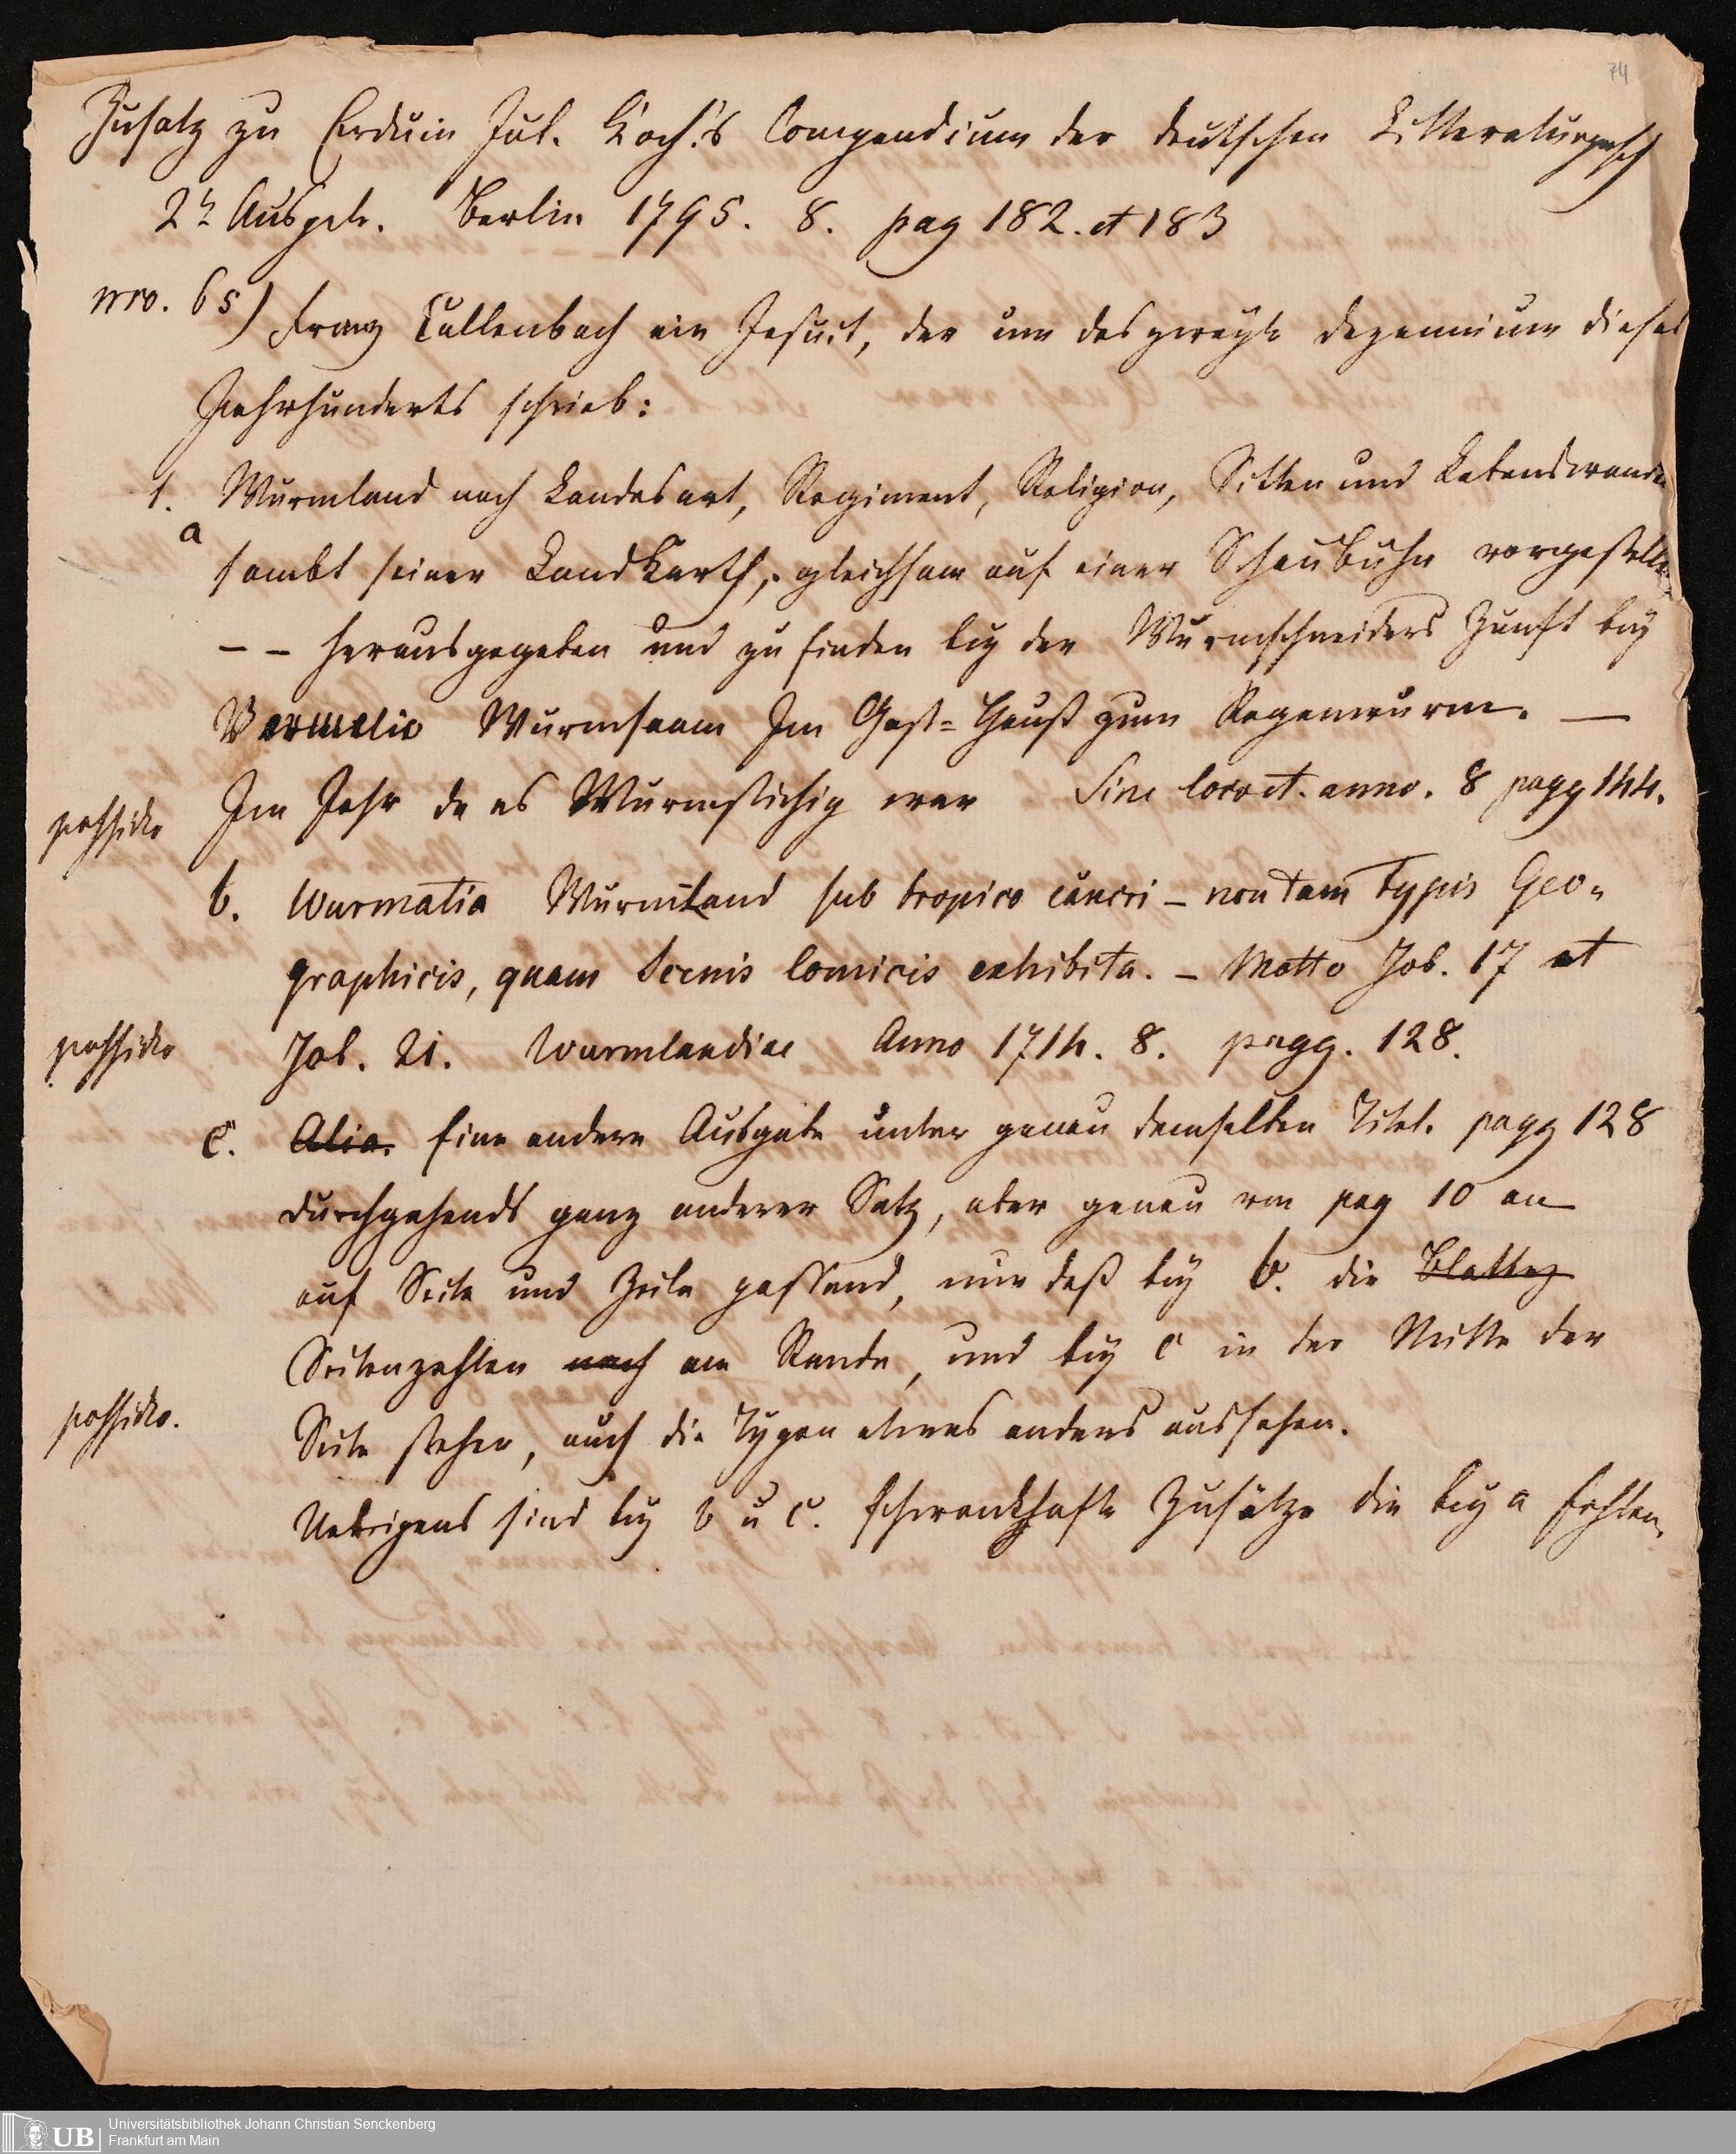 74
Zusatz zu Erduin Jul. Koch's Compendium der deutschen Litteraturgesch
2te Ausgabe. Berlin 1795. 8. pag 182. et 183
nro. 65) Franz Callenbach ein Jesuit, der um das zweyte Dezennium dieses
Jahrhunderts schrieb:
1. Wurmland nach Landesart, Regiment, Religion, Sitten und Lebenswandel
a
sambt seiner LandKarth, gleichsam auf einer Schaubühn vorgestellt
– – herausgegeben und zu finden bey der Wurmschneiders Zunft bey
Vermelio Wurmsaam Im Gast=Hauß zum Regenwurm. —
possideo Im Jahr da es Wurmstichig war Sine loco et anno. 8 pagg 144.
b. Wurmatia Wurmland sub tropico cancri – non tam typis Geo=
graphicis, quam Scenis Comicis exhibita. – Motto Job. 17 et
possideo Job. 21. Wurmlandiae Anno 1714. 8. pagg. 128.
c. Alia. Eine andere Ausgabe unter genau demselben Titel. pagg 128
durchgehends ganz anderer Satz, aber genau von pag 10 an
auf Seite und Zeile passend, nur daß bey b. die
Seitenzahlen noch am Rande, und bey c in der Mitte der
possideo. Seite stehen, auch die Typen etwas anders aussehen.
Uebrigens sind bey b u c. schwankhafte Zusätze die bey a fehlen.
UB
Universitätsbibliothek Johann Christian Senckenberg
Frankfurt am Main